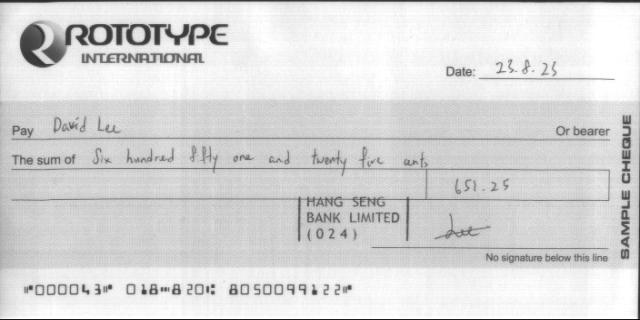 ROTOTYPE
INTERNATIONAL
Date: 23.8.23
Pay David Lee Or bearer
The sum of Six hundred fifty one and twenty five cents
651.25
HANG SENG
BANK LIMITED
(024)
Lee
No signature below this line
SAMPLE CHEQUE
⑈000043⑈ 018⑉820⑆ 8050099122⑈